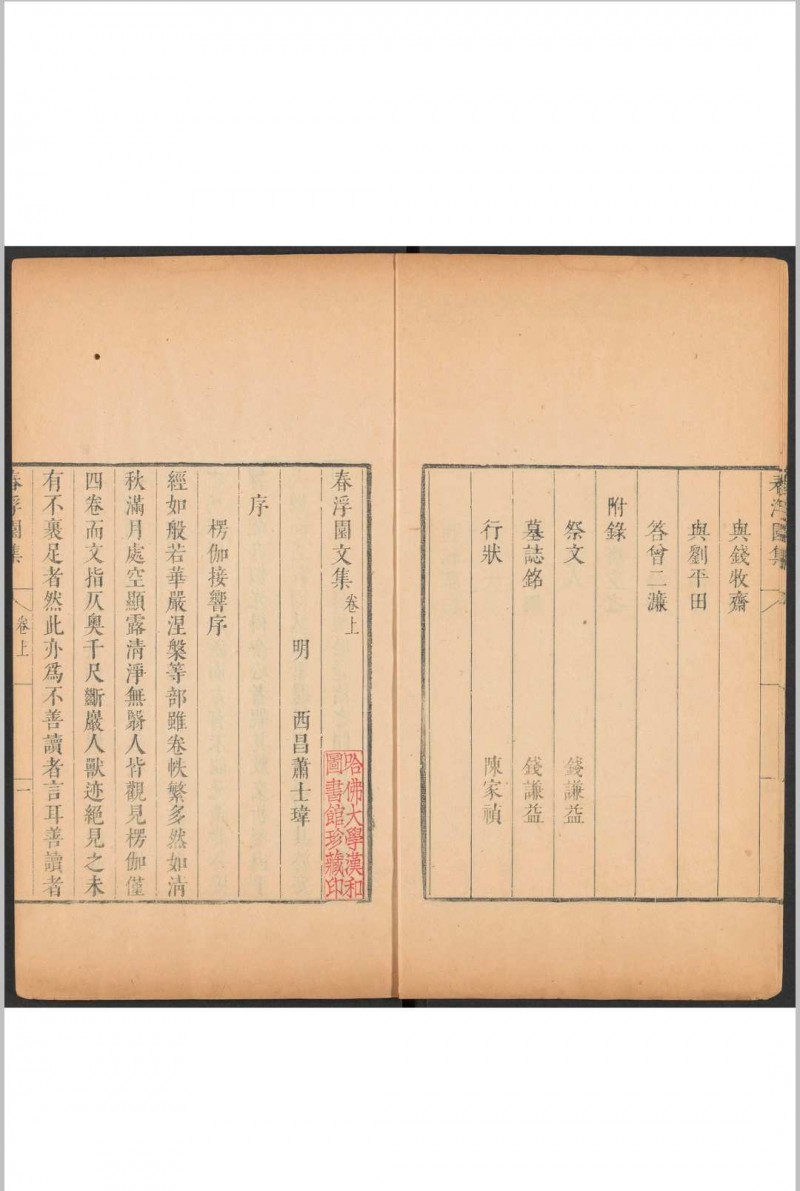 春浮園集
與錢牧齋
與劉平田
答曾二濂
附錄
祭文 錢謙益
墓誌銘 錢謙益
行狀 陳家禎
春浮園文集卷上
哈佛大學漢和
圖書館珍藏印
明 西昌蕭士瑋
序
楞伽接響序
經如般若華嚴涅槃等部雖卷帙繁多然如清
秋滿月處空顯露清淨無翳人皆觀見楞伽僅
四卷而文指仄奧千尺斷巖人獸迹絕見之未
有不裹足者然此亦爲不善讀者言耳善讀者
春浮園集 卷上 一